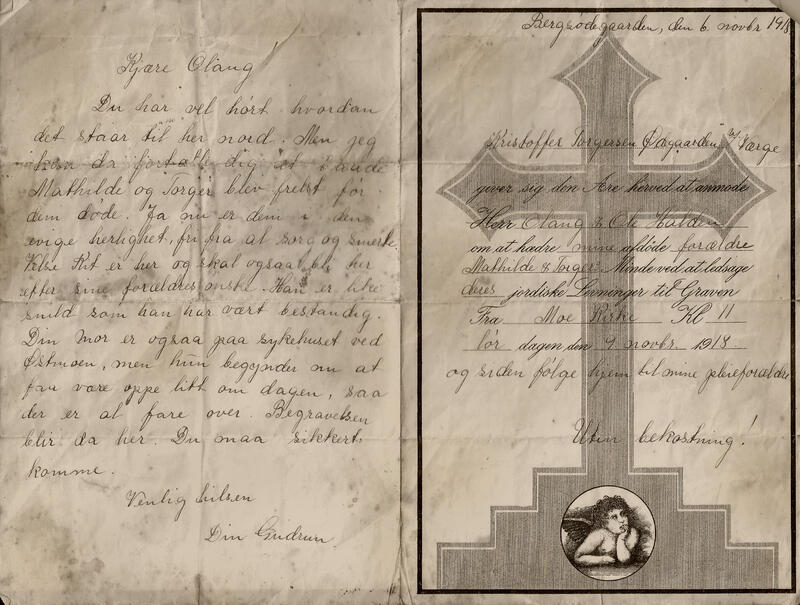 Kjære Olaug!
Du har vel hørt hvordan
det staar til her nord. Men jeg
kan da fortælle dig at baade
Mathilde og Torger blev frelst før
dem døde. Ja nu er dem i den
evige herlighet, fri fra al sorg og smerte.
Kit er her og skal ogsaa bli her
efter sine forældres ønske. Han er like
snild som han har vært bestandig.
Din mor er ogsaa paa sykehuset ved
Østmoen, men hun begynder nu at
faa være oppe litt om dagen, saa
der er al fare over. Begravelsen
blir da her. Du maa sikkert
komme.
Venlig hilsen
Din Gudrun.
Bergsødegaarden, den 6. novbr 1918
Kristoffer Torgersen Ødgaarden Værge
giver sig den Ære herved at anmode
Herr Olaug & Ole Halden
om at hædre mine afdöde forældre
Mathilde & Torger's Minde ved at ledsage
deres jordiske Levninger til Graven
Fra Moe Kirke Kl 11
lør dagen, den 9 novbr. 1918.
og siden følge hjem til mine pleieforældre
Uten bekostning!